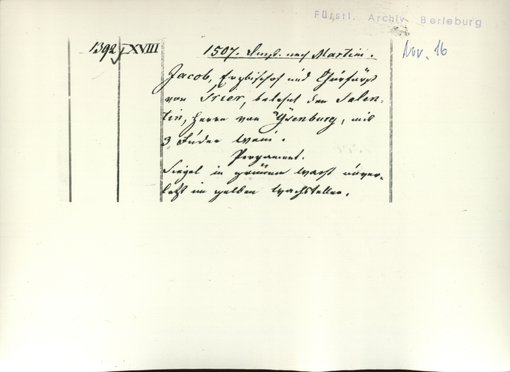 Fürstl. Archiv Berleburg
Nov. 16
1392 XVIII 1507. Dmst. nach Martin.
Jacob, Erzbischof und Churfürst
von Trier, belehnt den Salen-
tin, Herrn von Ysenburg, mit
3 Fuder Wein.
Pergament.
Siegel in grünem Wachs unver-
letzt im gelben Wachsteller.